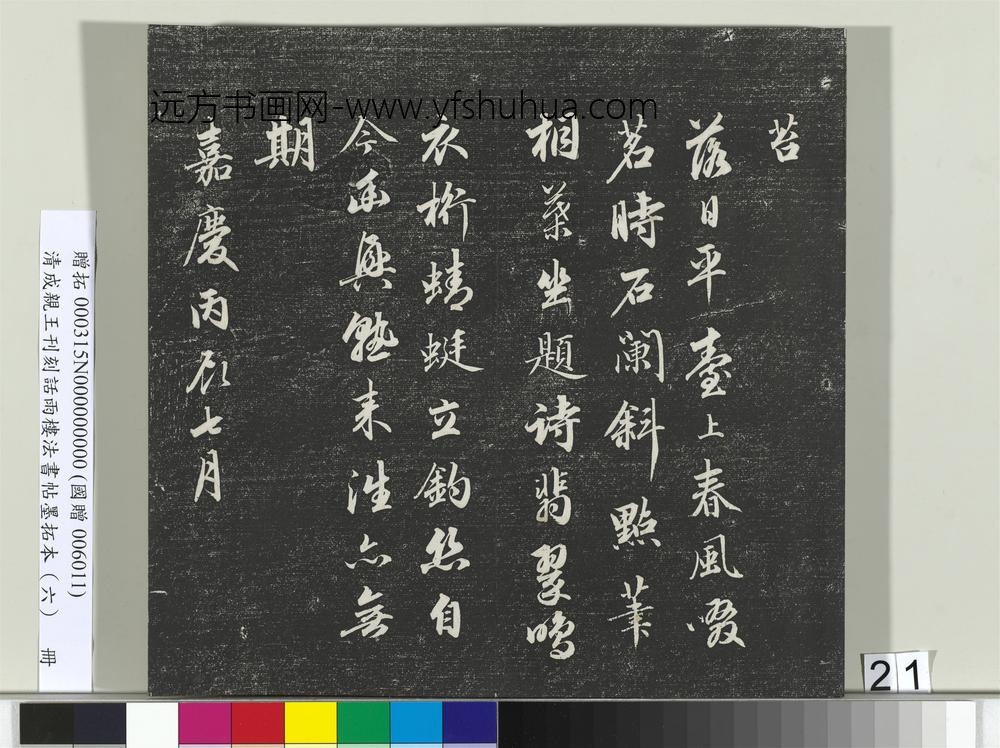 远方书画网-www.yfshuhua.com
苔
落日平臺上春風啜
茗時石闌斜點筆
桐葉坐題诗翡翠鳴
衣桁蜻蜓立釣丝自
今幽興熟来徃亦無
期
嘉慶丙辰七月
贈拓 000315N000000000 (國贈 006011)
清成親王刊刻話雨樓法書帖墨拓本（六） 冊
21